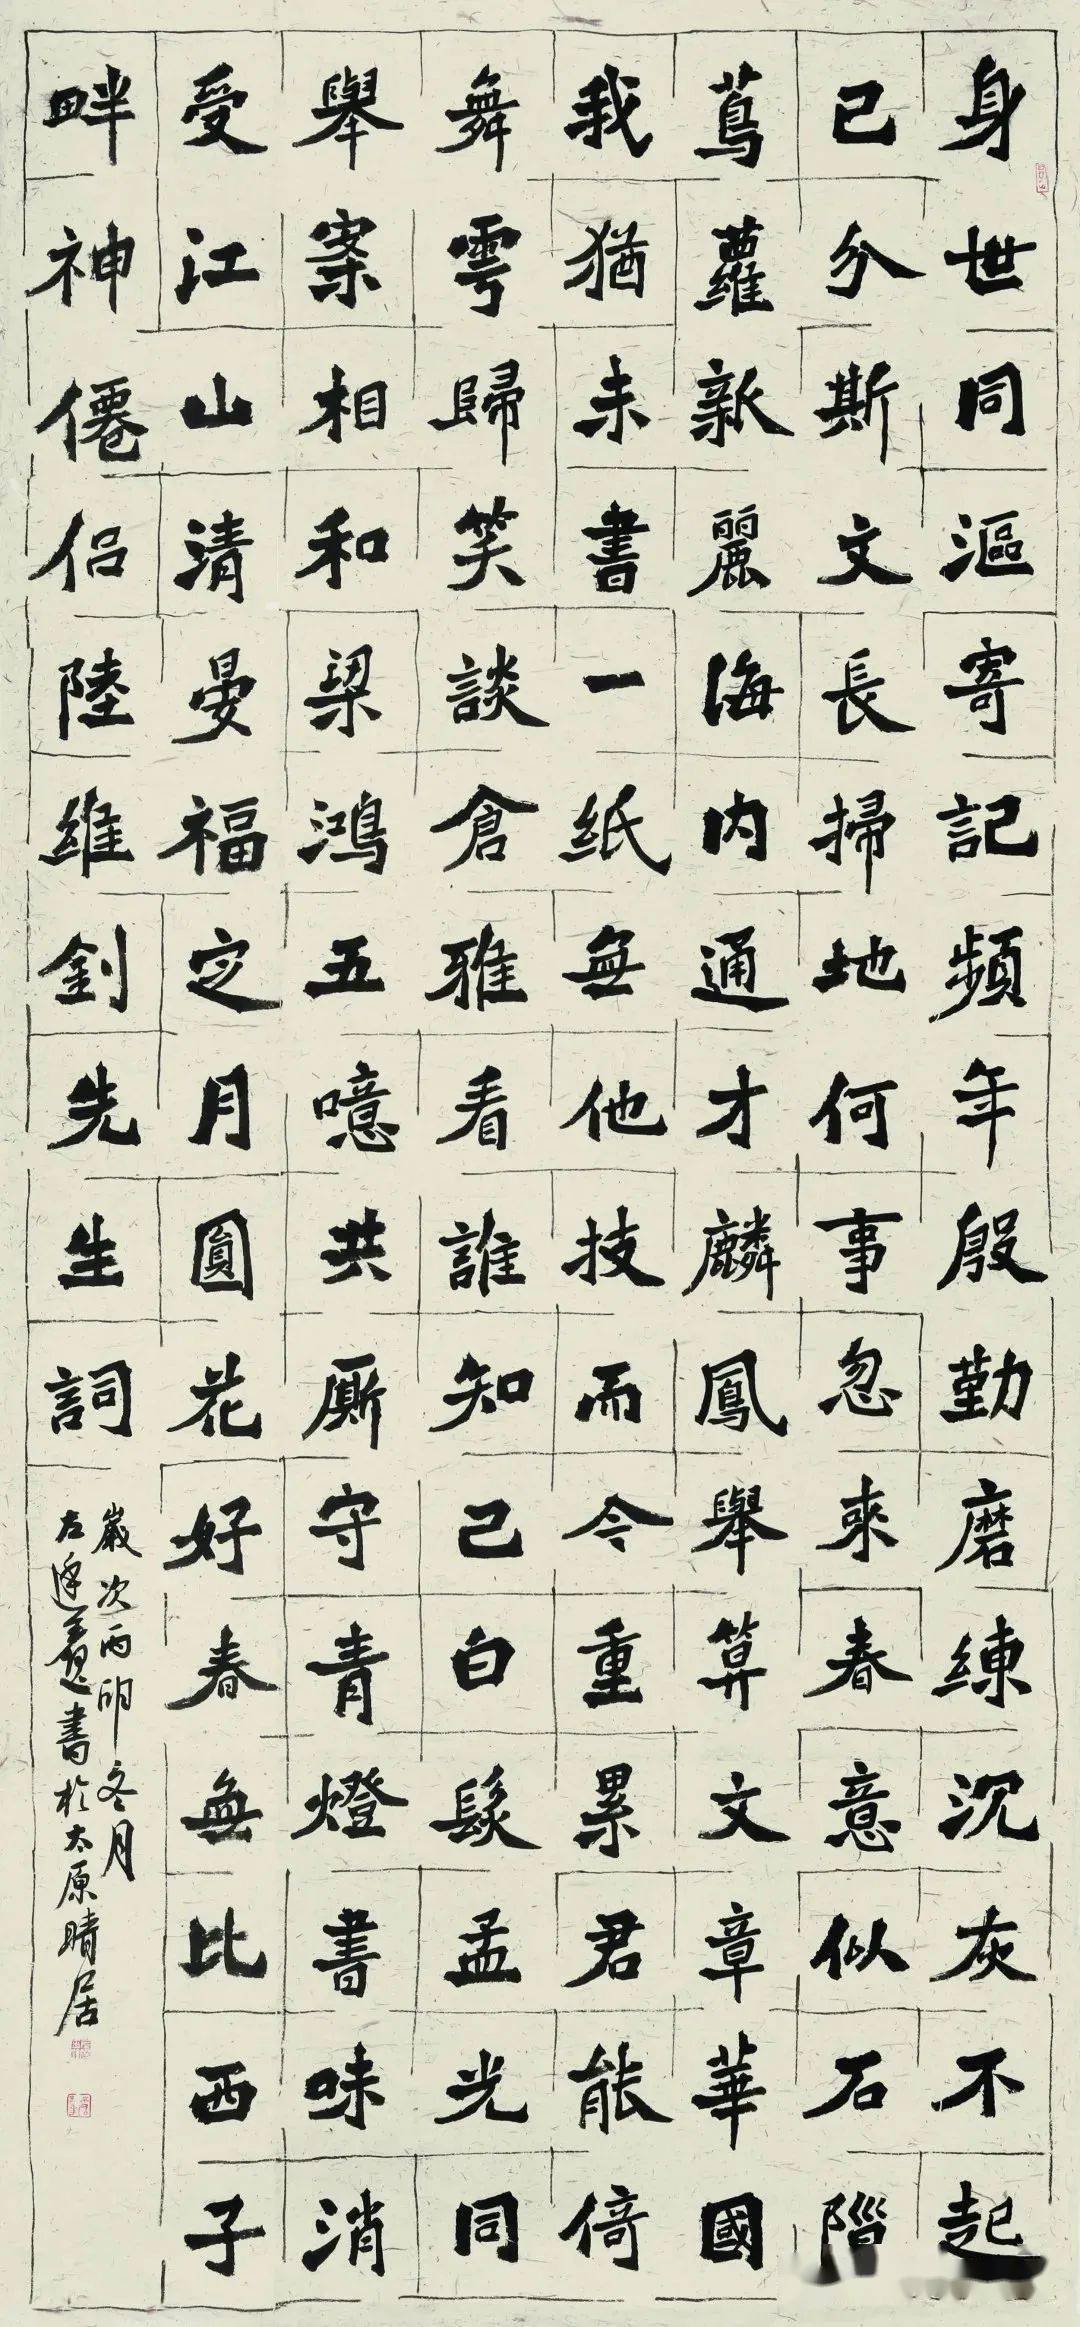 身世同漚寄記頻年殷勤磨練沉灰不起
已分斯文長掃地何事忽來春意似石階
蔦蘿新麗海內通才麟鳳舉算文章華國
我猶未書一紙無他技而今重累君能倚
舞雩歸笑談倉雅看誰知己白髮孟光同
舉案相和梁鴻五噫共廝守青燈書味消
受江山清晏福定月圓花好春無比西子
畔神僊侶陸維釗先生詞
歲次丙卯冬月
左逢義書於太原晴居